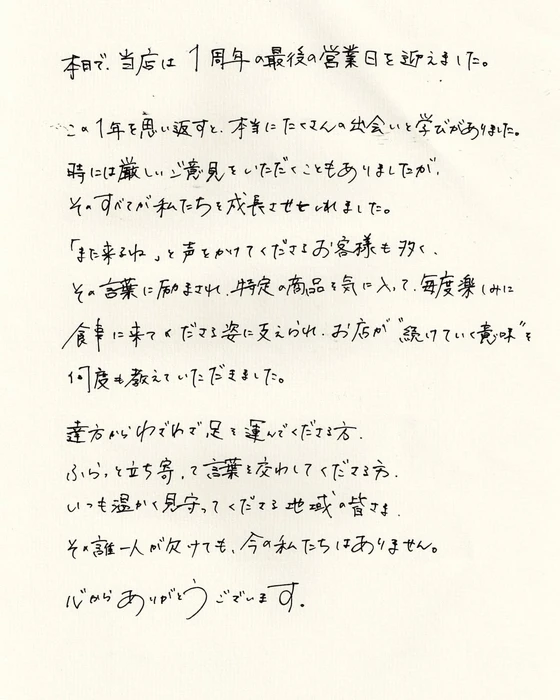 本日で、当店は1周年の最後の営業日を迎えました。
この1年を思い返すと、本当にたくさんの出会いと学びがありました。
時には厳しいご意見をいただくこともありましたが、
そのすべてが私たちを成長させてくれました。
「また来るね」と声をかけてくださるお客様も多く、
その言葉に励まされ、特定の商品を気に入って、毎度楽しみに
食事に来てくださる姿に支えられ、お店が“続けていく意味”を
何度も教えていただきました。
遠方からわざわざ足を運んでくださる方、
ふらっと立ち寄って言葉を交わしてくださる方、
いつも温かく見守ってくださる地域の皆さま、
その誰一人が欠けても、今の私たちはありません。
心からありがとうございます。